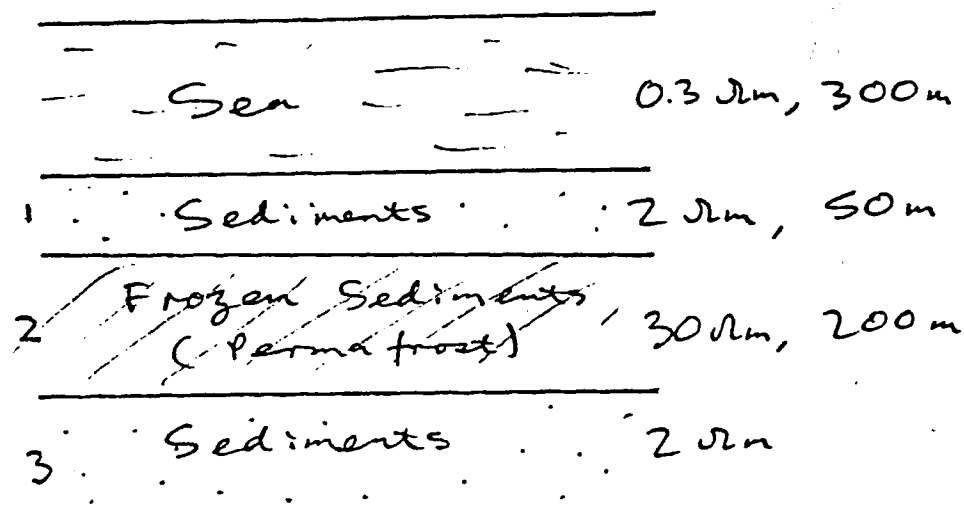 Sea 0.3 Ωm, 300m
1 Sediments 2 Ωm, 50m
Frozen Sediments
2 (Permafrost) 30Ωm, 200m
3 Sediments 2 Ωm